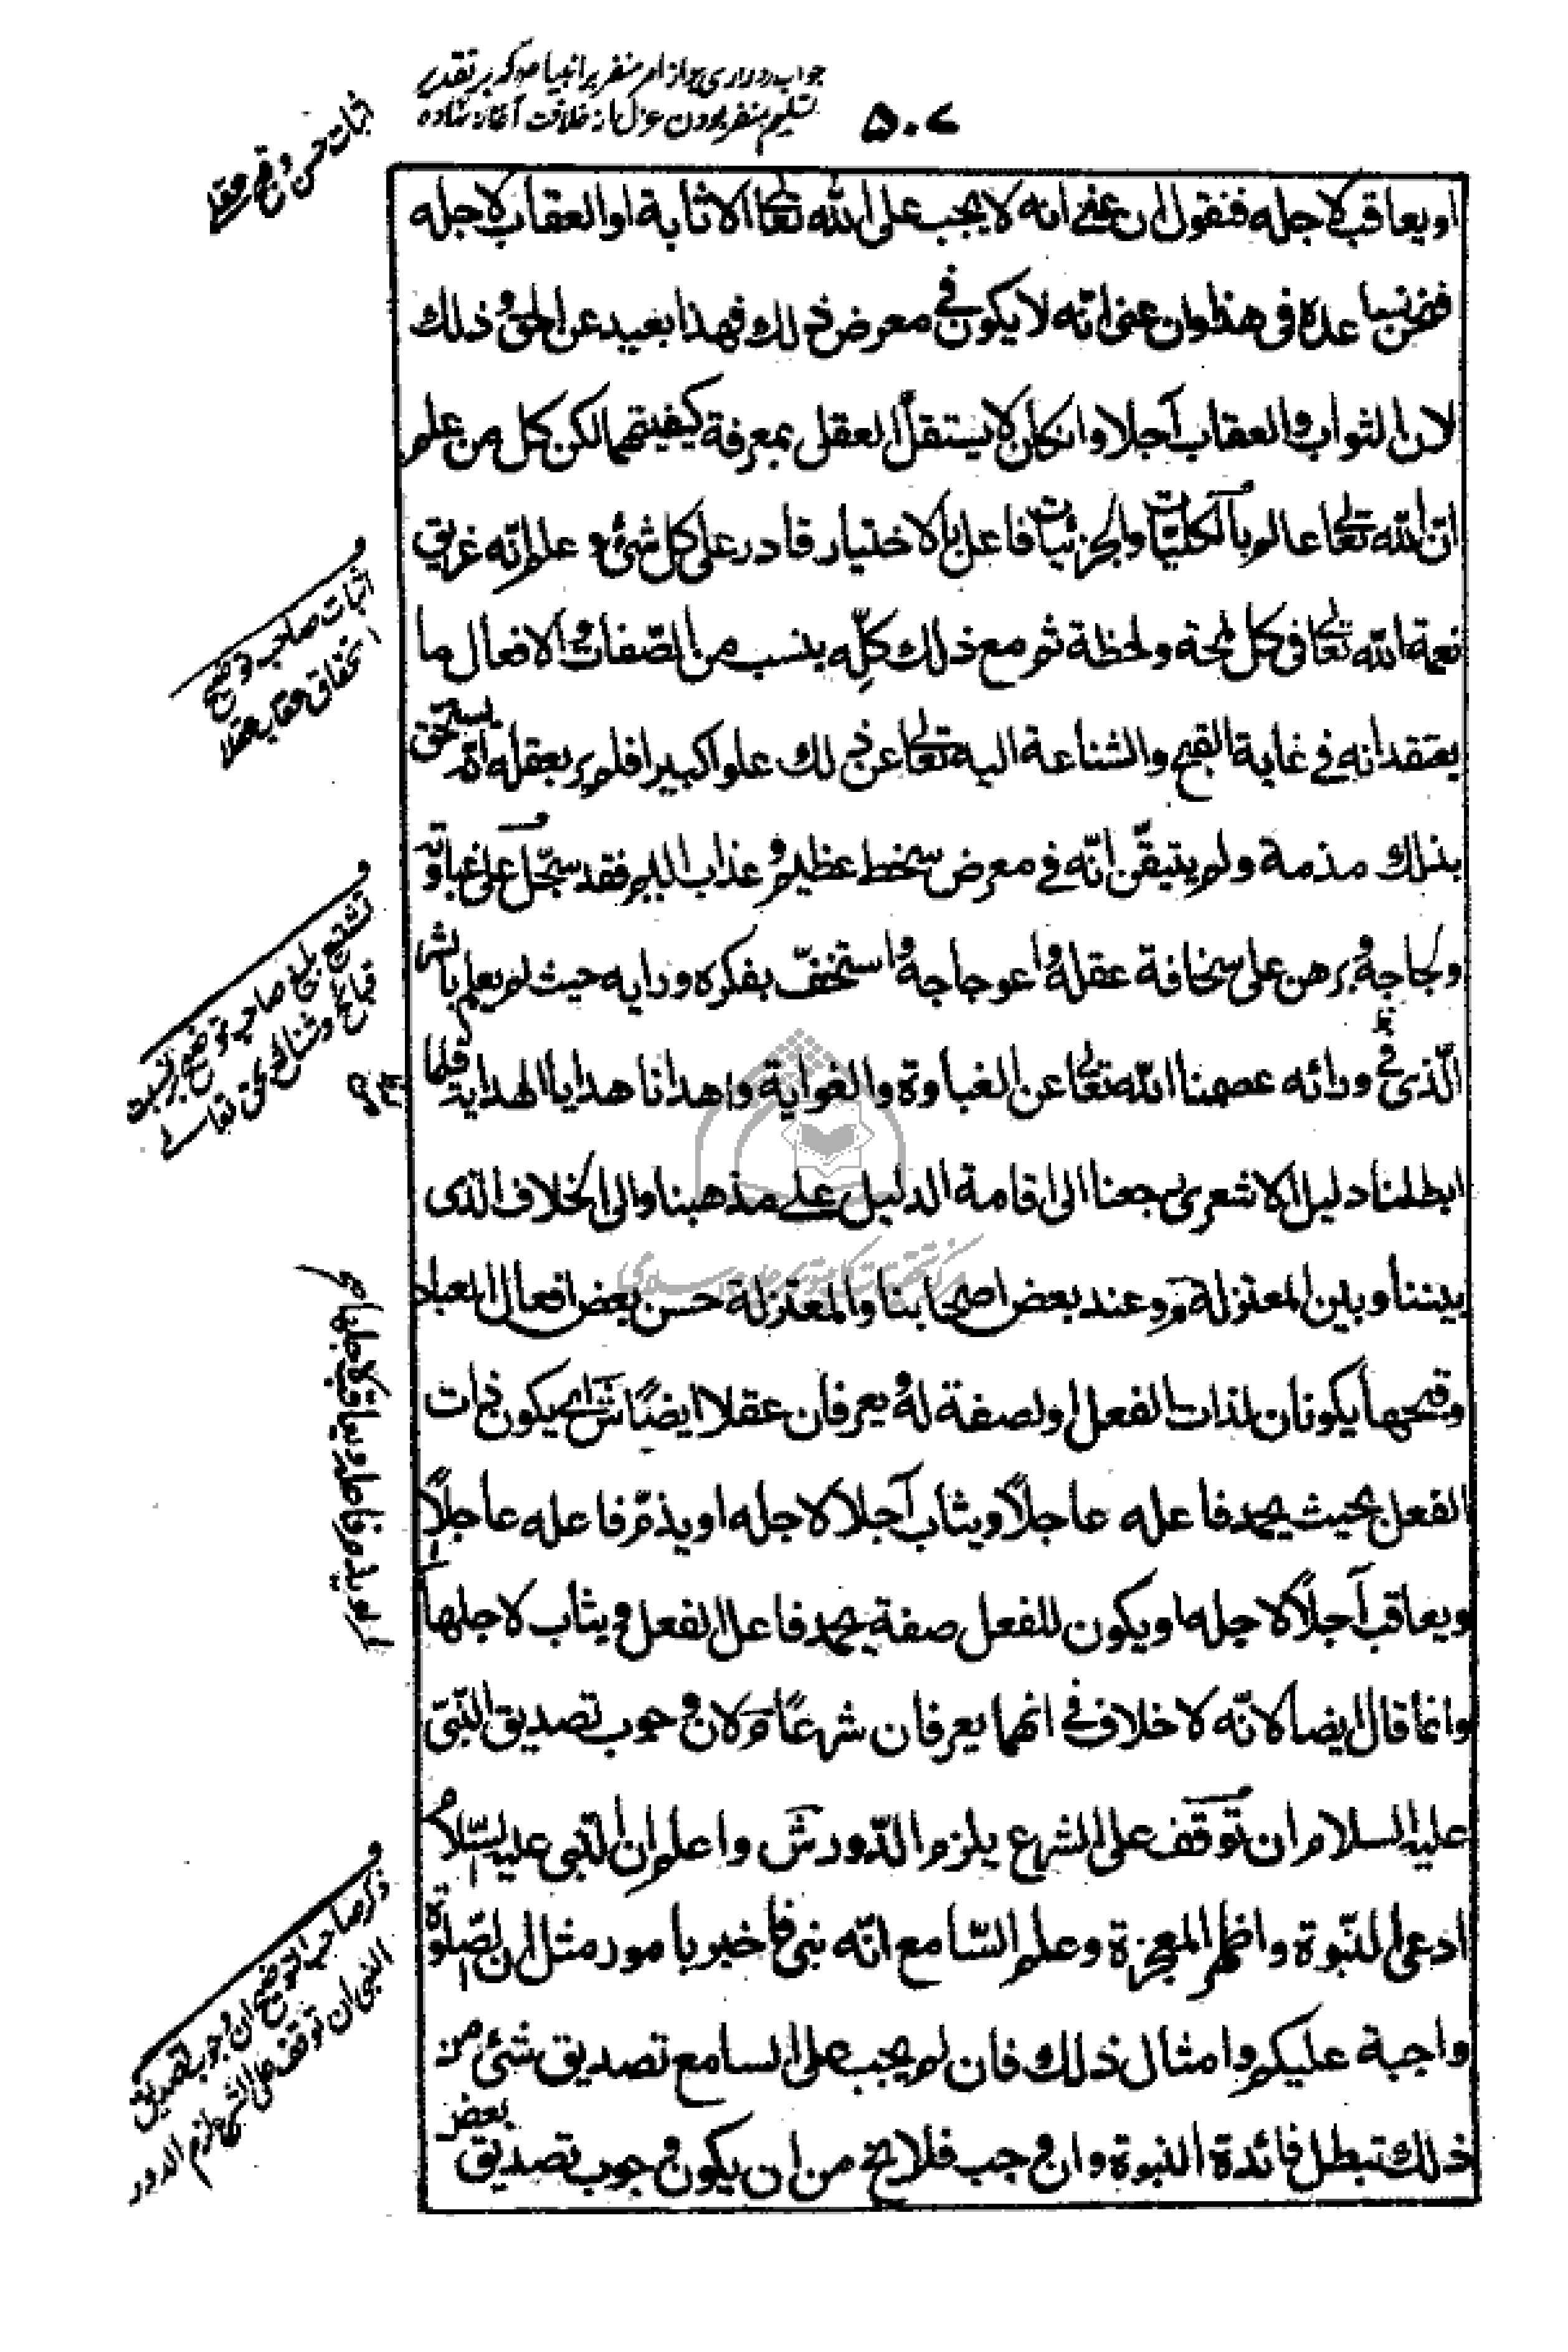 ۵۰۷
اثبات حسن و قبح عقلا
او يعاقب لاجله فنقول ان عنى انه لا يجب على الله تعالى الاثابة او العقاب لاجله
فنحن نساعده فى هذا وان عنى انّه لا يكون فى معرض ذلك فهذا بعيد عن الحق و ذلك
لان الثواب والعقاب آجلا وان كان لا يستقلّ العقل بمعرفة كيفيتهما لكن كل من علم
انّ الله تعالى عالم بالكليّات والجزئيات فاعل بالاختيار قادر على كل شئ و علم انّه غريق
نعمة الله تعالى فى كل لمحة ولحظة ثم مع ذلك كلّه ينسب من الصّفات و الافعال ما
يعتقد انه فى غاية القبح والشناعة اليه تعالى عن ذلك علوا كبيرا فلم ير بعقله انّه يستحق
بذلك مذمة ولم يتيقّن انّه فى معرض سخط عظيم و عذاب اليم فقد سجّل على غباوته
ولجاجه و برهن على سخافة عقله و اعوجاجه و استخفّ بفكره ورايه حيث لم يعلم بالشر
الّذى فى ورائه عصمنا الله تعالى عن الغباوة والغواية واهدانا هدايا الهداية فلما
ابطلنا دليل الاشعرى رجعنا الى اقامة الدليل على مذهبنا والى الخلاف الذى
بيننا وبين المعتزلة م وعند بعض اصحابنا والمعتزلة حسن بعض افعال العباد
وقبحها يكونان لذات الفعل او لصفة له و يعرفان عقلا ايضًا ش اى يكون ذات
الفعل بحيث يحمد فاعله عاجلاً ويثاب آجلا لاجله او يذمّ فاعله عاجلاً
ويعاقب آجلاً لاجله او يكون للفعل صفة يحمد فاعل الفعل و يثاب لاجلها
وانما قال ايضا لانّه لا خلاف فى انهما يعرفان شرعًا م لان وجوب تصديق النّبىّ
عليه السلام ان توقف على الشرع يلزم الدّور ش واعلم ان النّبى عليه السّلام
ادعى النّبوة واظهر المعجزة وعلم السّامع انّه نبى فاخبر بامور مثل ان الصّلوة
واجبة عليكم وامثال ذلك فان لم يجب على السامع تصديق شئ من
ذلك تبطل فائدة النبوة وان وجب فلا يخ من ان يكون وجوب تصديق بعض
اثبات صاحب توضيح
استحقاق عقاب عقلا
تشنيع بليغ صاحب توضيح بر نسبت
قبائح و شنائع بحق تعالى
او يذم فاعله ويعاقب لاجلها صح
ذكر صاحب التوضيح ان وجوب تصديق
النبى ان توقف على الشرع لزم الدور